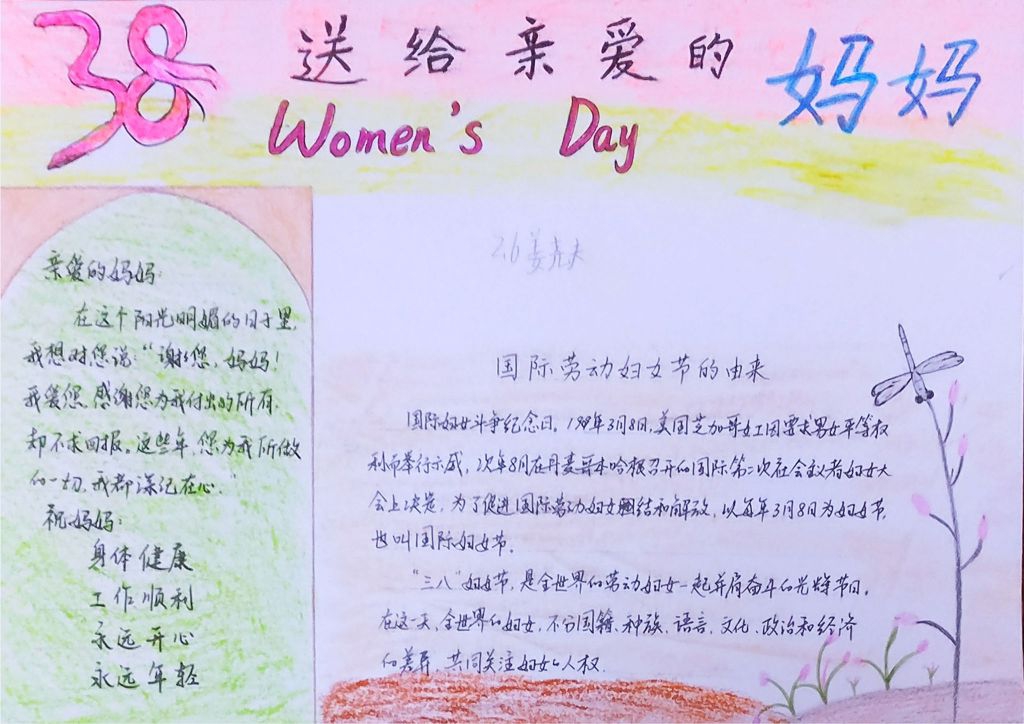 38 送给亲爱的妈妈
Women's Day
2.6 姜尧夫
亲爱的妈妈:
在这个阳光明媚的日子里,
我想对您说:“谢谢您,妈妈!
我爱您,感谢您为我付出的所有,
却不求回报。这些年,您为我所做
的一切,我都深记在心。”
祝妈妈:
身体健康
工作顺利
永远开心
永远年轻
国际劳动妇女节的由来
国际妇女斗争纪念日。1909年3月8日,美国芝加哥女工因要求男女平等权
利而举行示威,次年8月在丹麦哥本哈根召开的国际第二次社会主义者妇女大
会上决定,为了促进国际劳动妇女团结和解放,以每年3月8日为妇女节,
也叫国际妇女节。
“三八”妇女节,是全世界的劳动妇女一起并肩奋斗的光辉节日。
在这一天,全世界的妇女,不分国籍、种族、语言、文化、政治和经济
的差异,共同关注妇女的人权.